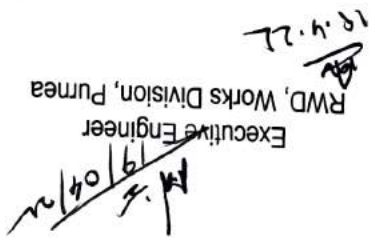 19/04/22
Executive Engineer
RWD, Works Division, Purnea
18.4.22